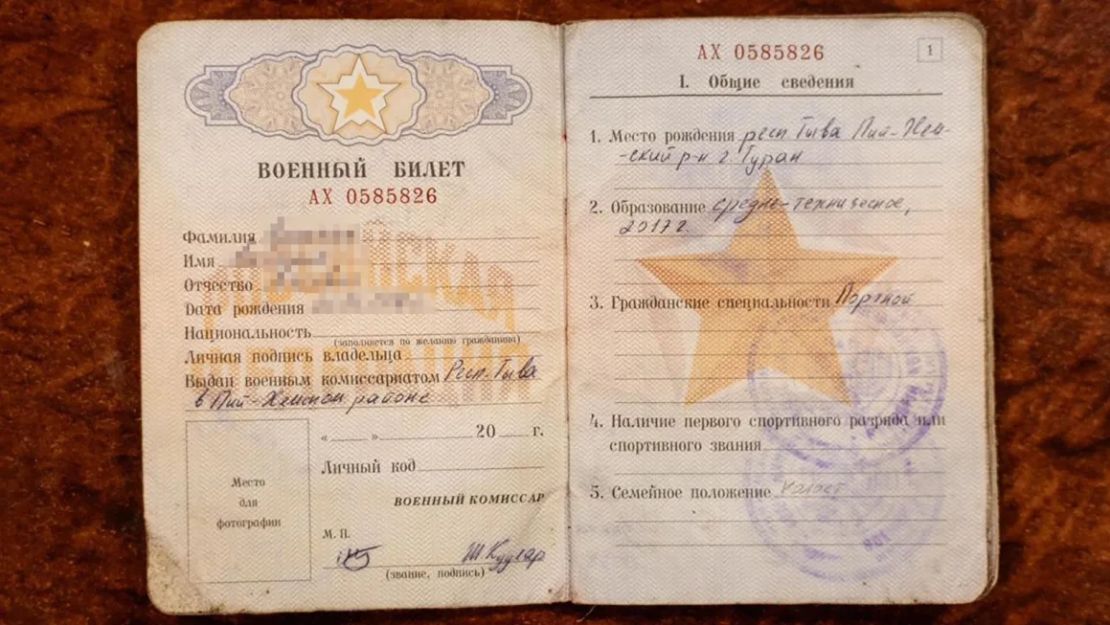 ВОЕННЫЙ БИЛЕТ
АХ 0585826
Фамилия
Имя
Отчество
Дата рождения
Национальность
(заполняется по желанию гражданина)
Личная подпись владельца
Выдан военным комиссариатом Респ. Тыва
в Пий-Хемском районе
« » 20 г.
Личный код
Место
для
фотографии
ВОЕННЫЙ КОМИССАР
М. П.
Ш. Куулар
(звание, подпись)
АХ 0585826
1
I. Общие сведения
1. Место рождения респ Тыва Пий-Хем-
-ский р-н г. Туран
2. Образование средне-техническое,
2017 г.
3. Гражданские специальности Портной
4. Наличие первого спортивного разряда или
спортивного звания
5. Семейное положение холост